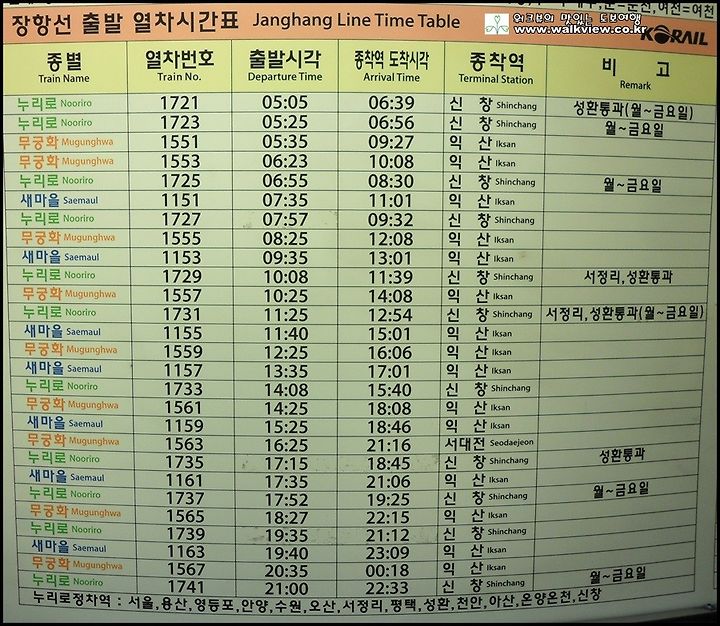 장항선 출발 열차시간표 Janghang Line Time Table
워크뷰의 맛있는 도보여행
www.walkview.co.kr
KORAIL
종별 열차번호 출발시각 종착역 도착시각 종착역 비 고
Train Name Train No. Departure Time Arrival Time Terminal Station Remark
누리로 Nooriro 1721 05:05 06:39 신 창 Shinchang 성환통과(월~금요일)
누리로 Nooriro 1723 05:25 06:56 신 창 Shinchang 월~금요일
무궁화 Mugunghwa 1551 05:35 09:27 익 산 Iksan
무궁화 Mugunghwa 1553 06:23 10:08 익 산 Iksan
누리로 Nooriro 1725 06:55 08:30 신 창 Shinchang 월~금요일
새마을 Saemaul 1151 07:35 11:01 익 산 Iksan
누리로 Nooriro 1727 07:57 09:32 신 창 Shinchang
무궁화 Mugunghwa 1555 08:25 12:08 익 산 Iksan
새마을 Saemaul 1153 09:35 13:01 익 산 Iksan
누리로 Nooriro 1729 10:08 11:39 신 창 Shinchang 서정리,성환통과
무궁화 Mugunghwa 1557 10:25 14:08 익 산 Iksan
누리로 Nooriro 1731 11:25 12:54 신 창 Shinchang 서정리,성환통과(월~금요일)
새마을 Saemaul 1155 11:40 15:01 익 산 Iksan
무궁화 Mugunghwa 1559 12:25 16:06 익 산 Iksan
새마을 Saemaul 1157 13:35 17:01 익 산 Iksan
누리로 Nooriro 1733 14:08 15:40 신 창 Shinchang
무궁화 Mugunghwa 1561 14:25 18:08 익 산 Iksan
새마을 Saemaul 1159 15:25 18:46 익 산 Iksan
무궁화 Mugunghwa 1563 16:25 21:16 서대전 Seodaejeon
누리로 Nooriro 1735 17:15 18:45 신 창 Shinchang 성환통과
새마을 Saemaul 1161 17:35 21:06 익 산 Iksan
누리로 Nooriro 1737 17:52 19:25 신 창 Shinchang 월~금요일
무궁화 Mugunghwa 1565 18:27 22:15 익 산 Iksan
누리로 Nooriro 1739 19:35 21:12 신 창 Shinchang
새마을 Saemaul 1163 19:40 23:09 익 산 Iksan
무궁화 Mugunghwa 1567 20:35 00:18 익 산 Iksan
누리로 Nooriro 1741 21:00 22:33 신 창 Shinchang 월~금요일
누리로정차역 : 서울,용산,영등포,안양,수원,오산,서정리,평택,성환,천안,아산,온양온천,신창